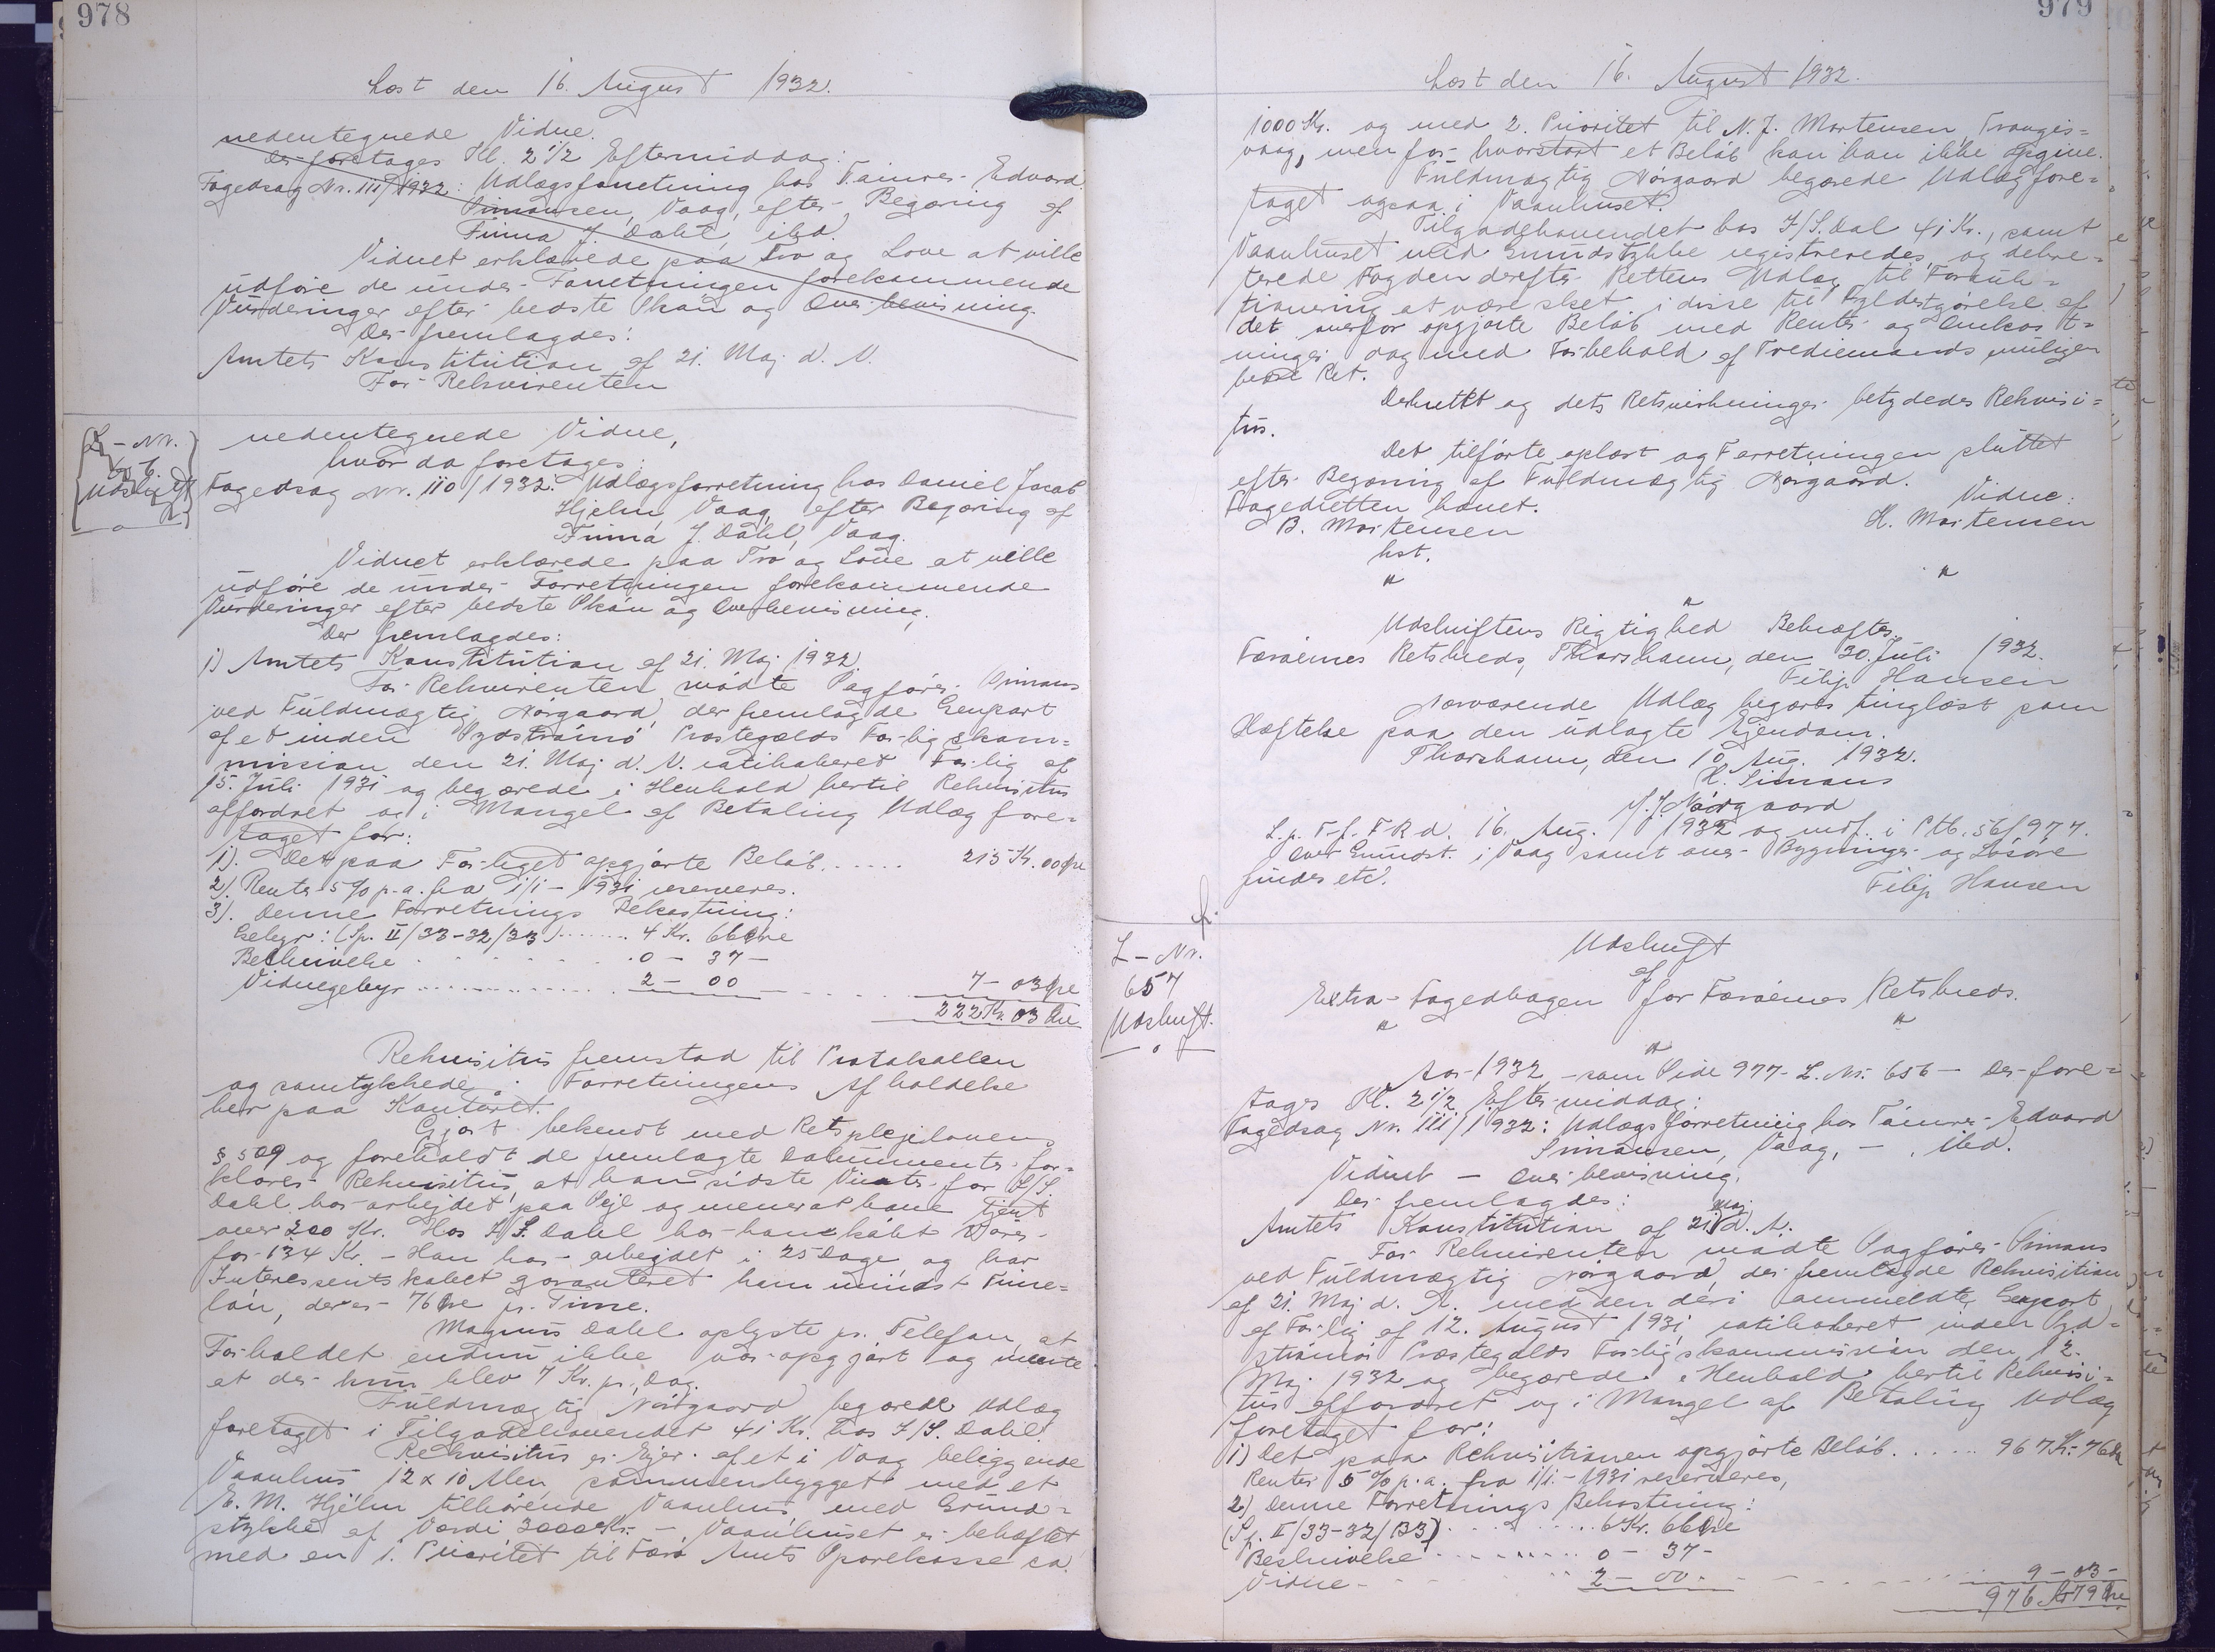 978
Læst den 16. August 1932.
nedentegnede Vidne.
Der foretages Kl. 2 1/2 Eftermiddag:
Fogedsag Nr. 111/1932: Udlægsforretning hos Tømrer Edvard
Simonsen, Vaag, efter Begæring af
Firma J. Dahl, ibd.
Vidnet erklærede paa Tro og Love at ville
udføre de under Forretningen forekommende
Vurderinger efter bedste Skøn og Overbevisning.
Der fremlagdes:
Amtets Konstitution af 21. Maj d. A.
For Rekvirenten
L-Nr.
656
Udskrift
nedentegnede Vidne,
hvor da foretages:
Fogedsag Nr. 110/1932. Udlægsforretning hos Daniel Jacob
Hjelm, Vaag, efter Begæring af
Firma J. Dahl, Vaag.
Vidnet erklærede paa Tro og Love at ville
udføre de under Forretningen forekommende
Vurderinger efter bedste Skøn og Overbevisning.
Der fremlagdes:
1) Amtets Konstitution af 21. Maj 1932.
For Rekvirenten mødte Sagfører Simons
ved Fuldmægtig Nørgaard, der fremlagde Genpart
af et inden Syдstrømø Præstegælds Forligskom=
mission den 21. Maj d. A. ratihaberet Forlig af
15. Juli 1931 og begærede i Henhold hertil Rekvisitus
affordret og i Mangel af Betaling Udlæg fore=
taget for:
1). Det paa Forliget opgjorte Beløb...... 215 Kr. 00 Øre
2). Renter 5% p.a. fra 1/1-1931 reserveres.
3). Denne Forretnings Bekostning:
Gebyr: (Sp. II/33-32/33)....... 4 Kr. 66 Øre
Beskrivelse . . . . . 0 - 37 -
Vidnegebyr .............. 2 - 00 - 7 - 03 Øre
222 Kr. 03 Øre
Rekvisitus fremstod til Protokollen
og samtykkede i Forretningens Afholdelse
her paa Kontoret.
Gjort bekendt med Retsplejelovens
§ 509 og foreholdt de fremlagte Dokumenter for=
klarer Rekvisitus, at han sidste Vinter for I/S.
Dahl har arbejdet paa Vejl og mener at have tjent
over 200 Kr. Hos I/S. Dahl har han købt Varer
for 134 Kr. - Han har arbejdet i 25 Dage, og har
Interessentskabet garanteret ham mindst Time=
løn, der er 76 Øre pr. Time.
Magnus Dahl oplyste pr. Telefon, at
Forholdet endnu ikke var opgjort og mente
at der kun blev 7 Kr. pr. Dag.
Fuldmægtig Nørgaard begærede Udlæg
foretaget i Tilgodehavendet 41 Kr. hos I/S. Dahl.
Rekvisitus er Ejer af et i Vaag beliggende
Vaanhus 12 x 10 Alen, sammenbygget med et
E. M. Hjelm tilhørende Vaanhus, med Grund=
stykke af Værdi 3000 Kr. - Vaanhuset er behæftet
med en 1. Prioritet til Færø Amts Sparekasse ca.
979
Læst den 16. August 1932.
1000 Kr. og med 2. Prioritet til N. J. Mortensen, Frangis=
vaag, men for hvorstort et Beløb kan han ikke opgive.
Fuldmægtig Nørgaard begærede Udlæg fore=
taget ogsaa i Vaanhuset.
Tilgodehavendet hos I/S. Dal 41 Kr., samt
Vaanhuset med Grundstykke registreredes, og dekre=
terede Fogden derefter Rettens Udlæg til Forauk=
tionering at være sket i disse til Fyldestgørelse af
det ovenfor opgjorte Beløb med Renter og Omkost=
ninger dog med Forbehold af Trediemands muligen
bedre Ret.
Dekretet og dets Retsvirkninger betydedes Rekvisi=
tus.
Det tilførte oplæst og Forretningen sluttet
efter Begæring af Fuldmægtig Nørgaard.
Fogedretten hævet.
Vidne:
B. Mortensen
H. Mortensen
kst.
Udskriftens Rigtighed Bekræftes
Færøernes Retskreds, Thorshavn, den 30. Juli 1932.
Filip Hansen
Nærværende Udlæg begæres tinglæst som
Hæftelse paa den udlagte Ejendom.
Thorshavn, den 10. Aug. 1932.
H. Simons
N. J. Nørgaard
L. p. T. f. F R d. 16. Aug. 1932 og indf. i Ptb. 56/977.
Over Grundst. i Vaag samt over Bygninger og Løsøre
findes etc.
Filip Hansen
L-Nr.
657
Udskrift.
Udskrift
af
Extra-Fogedbogen for Færøernes Retskreds.
Aar 1932 - som Side 977 L. Nr. 656 - Der fore=
tages Kl. 2 1/2 Eftermiddag:
Fogedsag Nr. 111/1932: Udlægsforretning hos Tømrer Edvard
Simonsen, Vaag, - , ibd.
Vidnet - Overbevisning.
Der fremlagdes:
Amtets Konstitution af 21. Maj d. A.
For Rekvirenten mødte Sagfører Simons
ved Fuldmægtig Nørgaard, der fremlagde Rekvisition
af 21. Maj d. A. med den deri ommeldte Genpart
af Forlig af 12. August 1931, ratihaberet inden Syd=
strømø Præstegælds Forligskommission den 12.
Maj 1932 og begærede i Henhold hertil Rekvisi=
tus affordret og i Mangel af Betaling Udlæg
foretaget for:
1) Det paa Rekvisitionen opgjorte Beløb...... 967 Kr. 76 Øre
Renter 5% p.a. fra 1/1-1931 reserveres,
2) Denne Forretnings Bekostning:
(Sp. II/33-32/33)......... 6 Kr. 66 Øre
Beskrivelse......... 0 - 37 -
Vidne - - - - 2 - 00 - 9 - 03 -
976 Kr 79 Øre